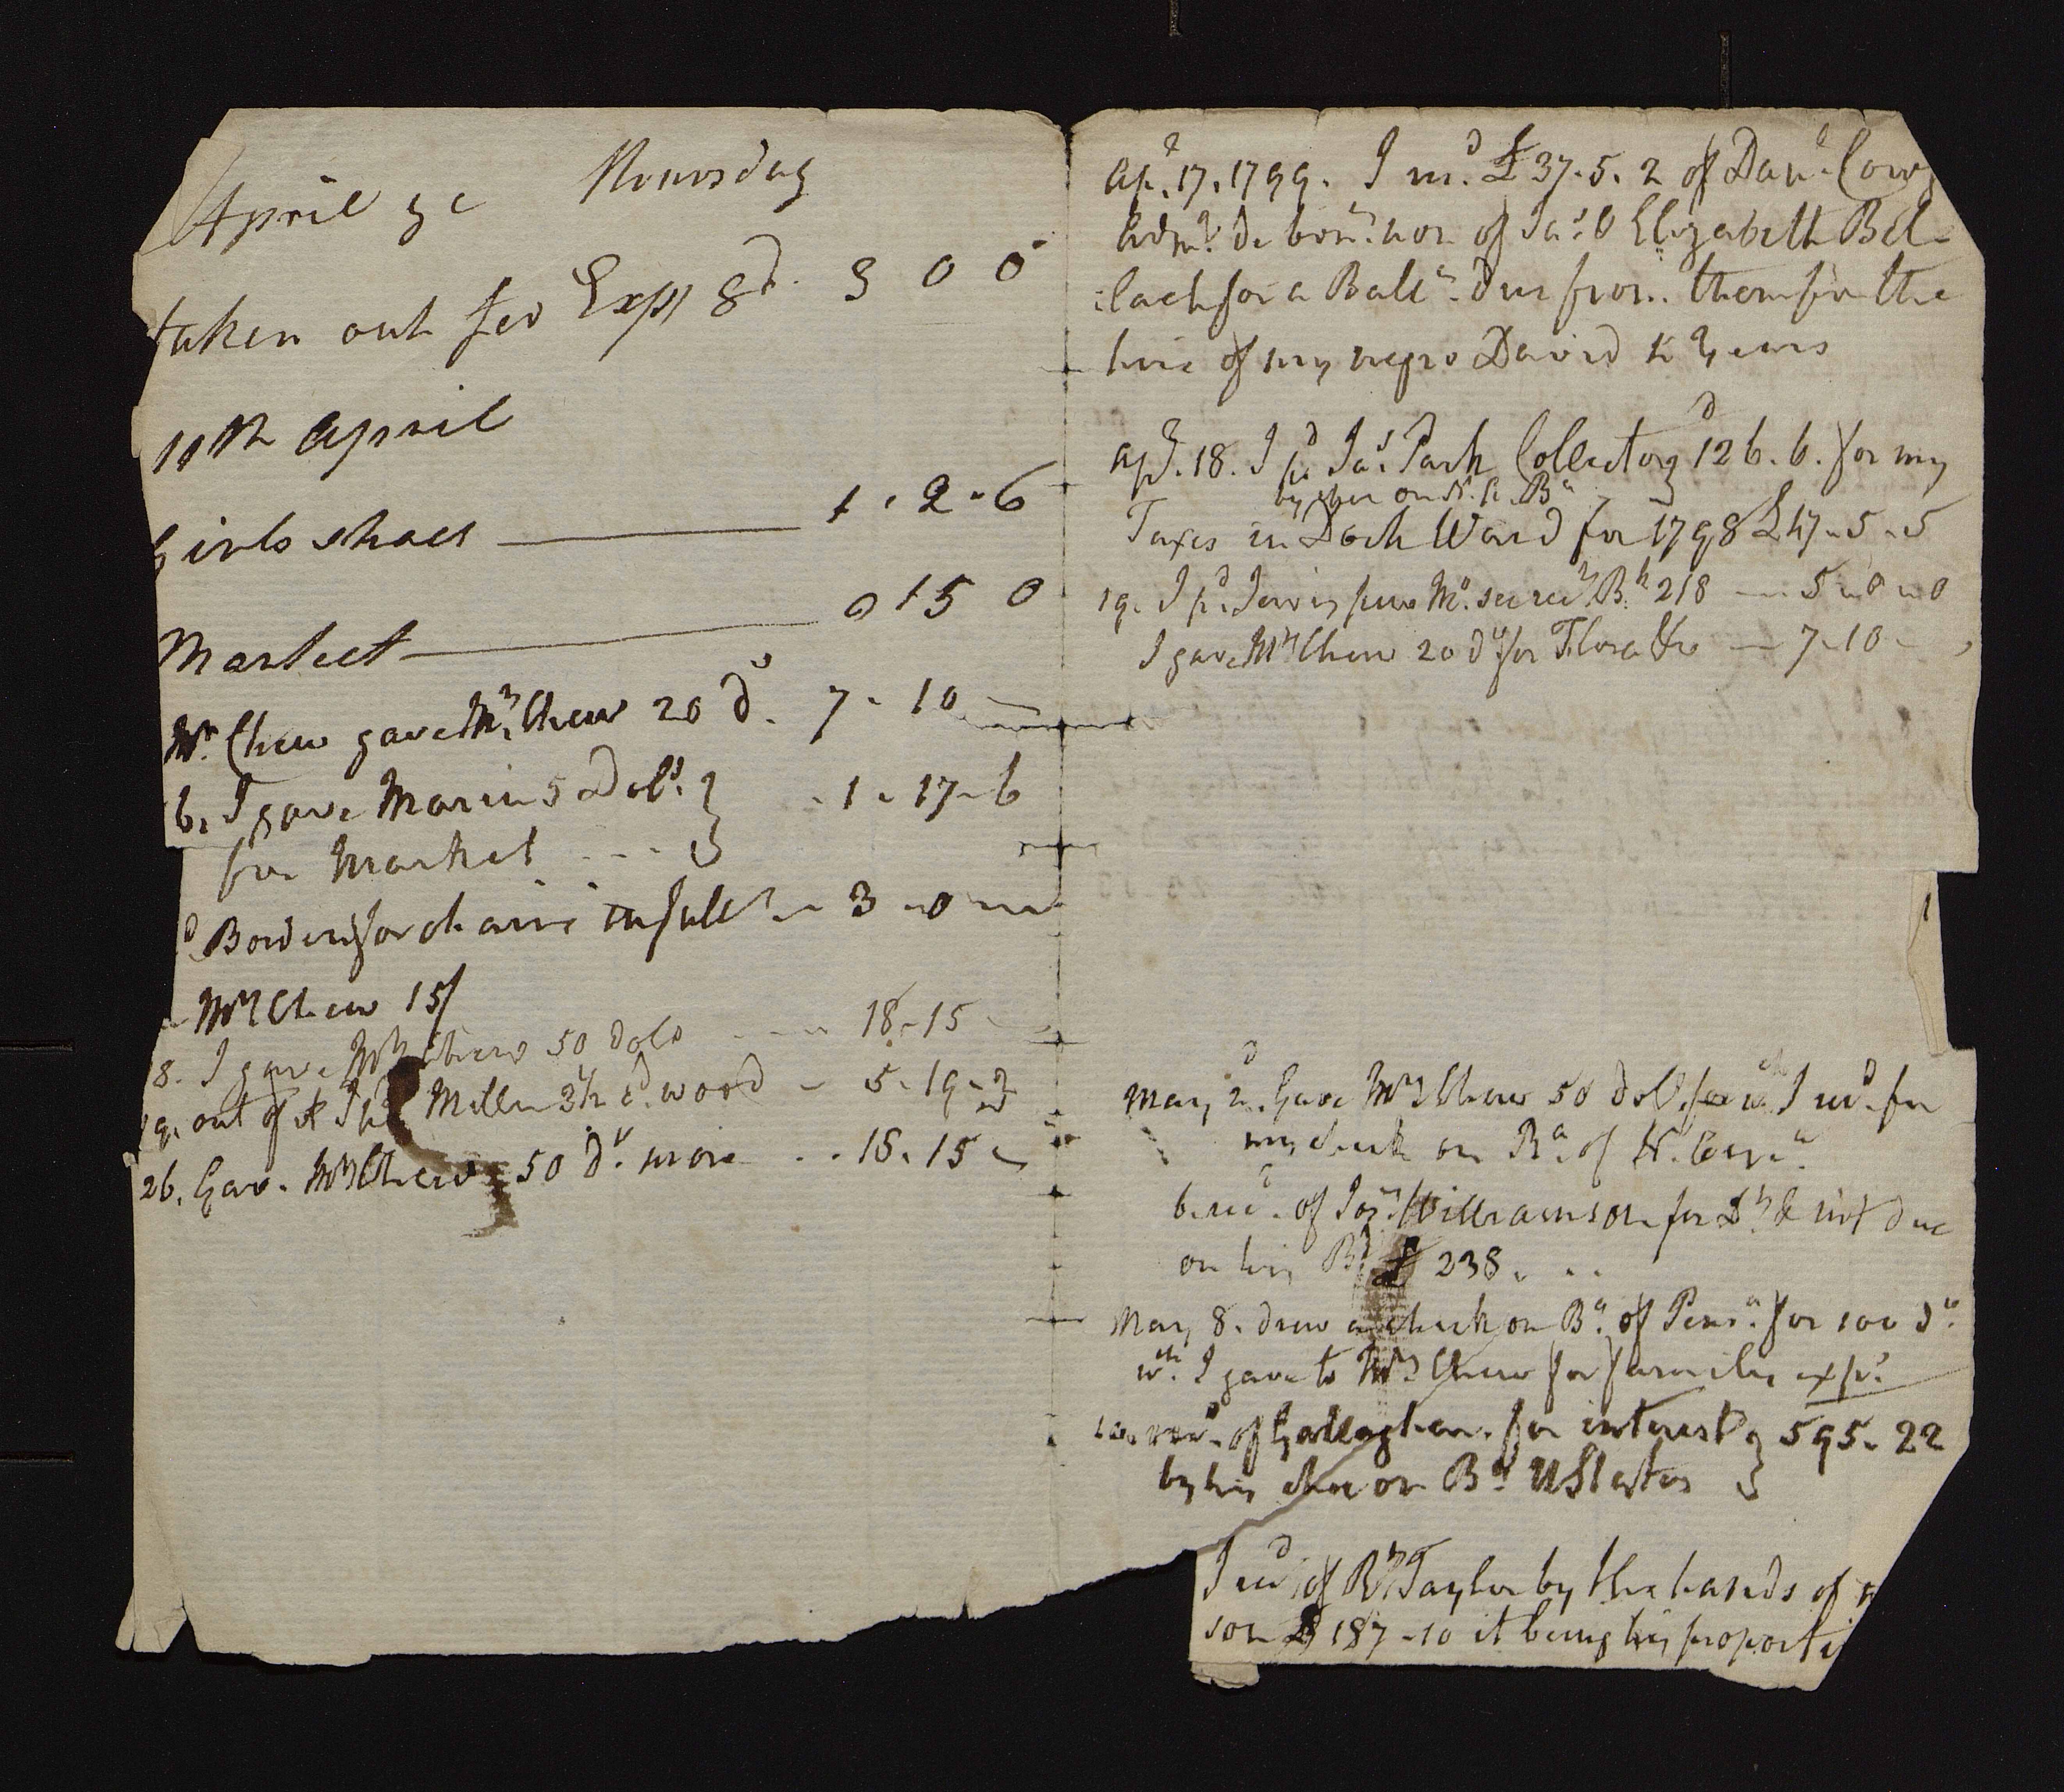 April ye Thursday
taken out for Exps 8d. 3 0 0
11th April
Girls shoes — 1 . 2 - 6
Market — 0 15 0
Mr. Chew gave Mrs Chew 20 do. 7 - 10
6. I gave Maria 5 Dols. } - 1 - 17 - 6
for Market - - - }
d Borden for chairs in full - 3 - 0
Mrs Chew 15/
8. I gave Mrs Chew 50 dols - 18 - 15
19. out of it I pd Miller wood - 5 - 19 - 2
26. Gave Mrs Chew 50 do. more - - 18. 15
Apl. 17. 1799. I recd. £37. 5. 2 of Danl.
Admr. de bonis non of Jas. & Elizabeth Bel-
lach for a Balle. due from them for the
hire of my negro David 10 years
Apl. 18. I pd. Jas. Park Collector 126. 6. for my
by chec on N. A. Ba
Taxes in Dock Ward for 1798 £47 - 5 - 5
19. I pd. 218 — 5 - 0 - 0
I gave Mrs Chew 20 do for Flora &c — 7 - 10 -
May 2d. Gave Mrs Chew 50 dol. for wch I recd. for
my check on Ba. of N. Ama.
6. recd. of Jos. Williamson for int due
on his Bd £ 238. . .
May 8. drew a check on Ba. of Pena. for 100 do.
wch. I gave to Mrs Chew for family exps.
recd. of Gallagher. for interest } 595. 22
by his chec on Ba. U States }
I recd of Rt Taylor by the hands of
son £ 187 - 10 it being his proporti